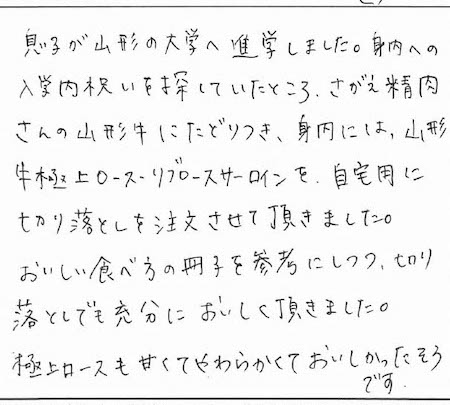 息子が山形の大学へ進学しました。身内への
入学内祝いを探していたところ、さがえ精肉
さんの山形牛にたどりつき、身内には、山形
牛極上ロース・リブロースサーロインを、自宅用に
切り落としを注文させて頂きました。
おいしい食べ方の冊子を参考にしつつ、切り
落としでも充分においしく頂きました。
極上ロースも甘くてやわらかくておいしかったそう
です.